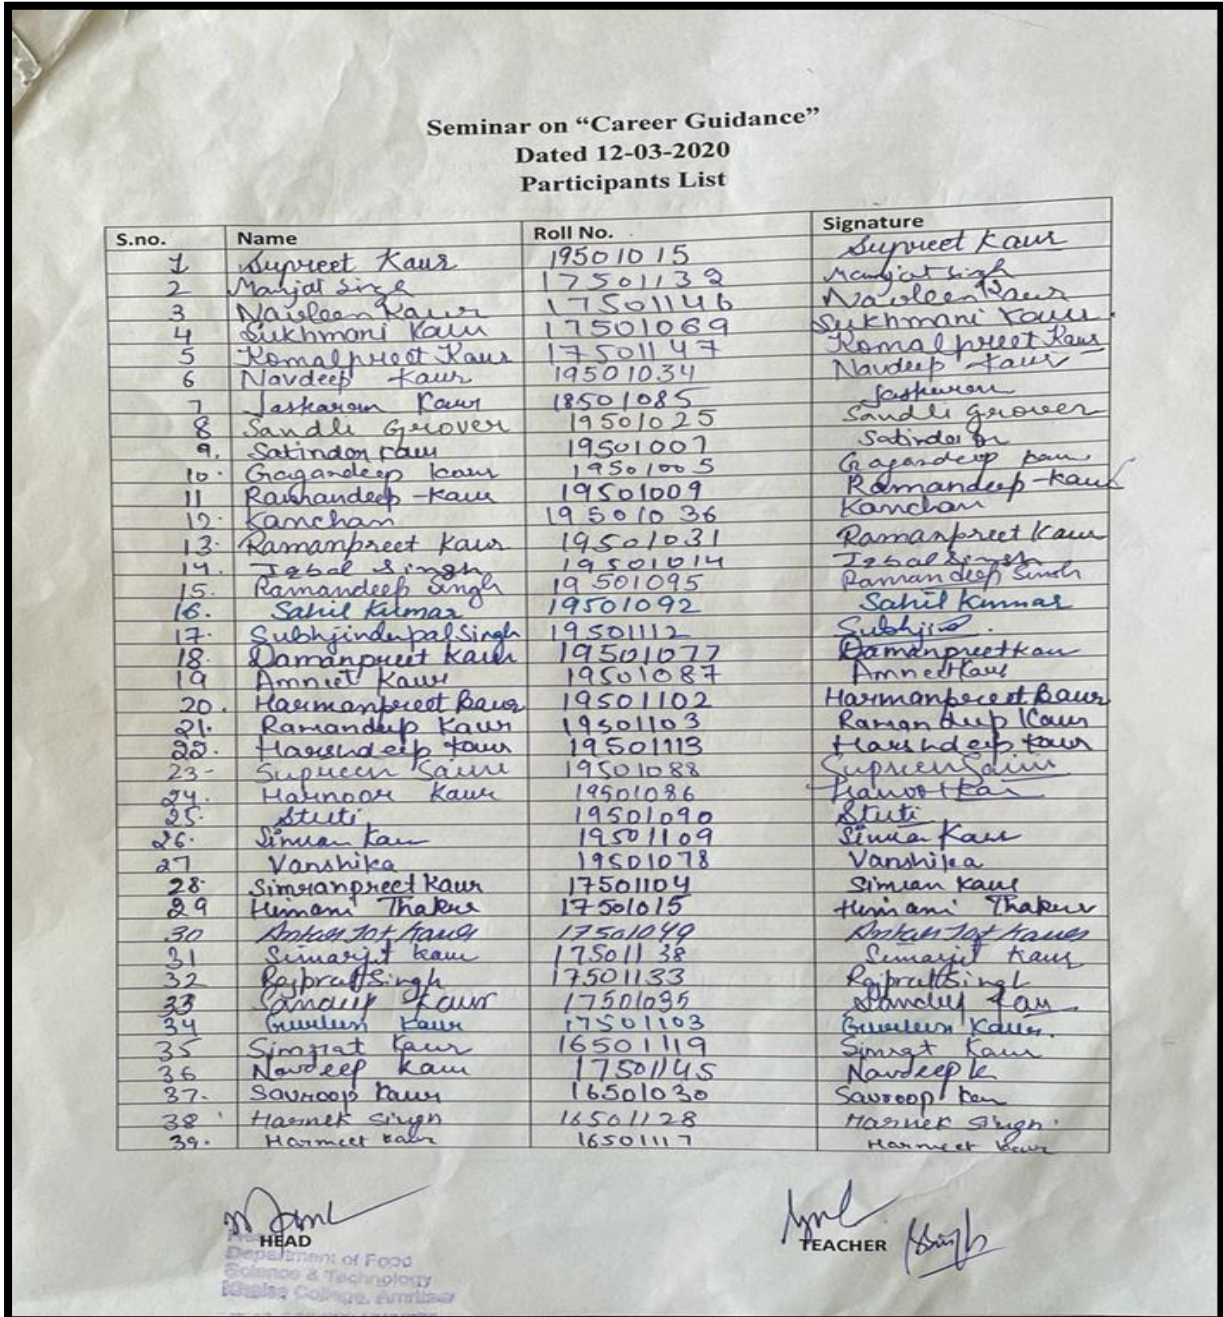 Seminar on “Career Guidance”
Dated 12-03-2020
Participants List
S.no. Name Roll No. Signature
1 Supreet Kaur 19501015 Supreet Kaur
2 Manjot Singh 17501132 Manjot Singh
3 Navleen Kaur 17501146 Navleen Kaur
4 Sukhmani Kaur 17501069 Sukhmani Kaur
5 Komalpreet Kaur 17501147 Komalpreet Kaur
6 Navdeep Kaur 19501034 Navdeep Kaur
7 Jaskaran Kaur 18501085 Jaskaran
8 Sandli Grover 19501025 Sandli Grover
9. Satinder Kaur 19501007 Satinder
10. Gagandeep Kaur 19501005 Gagandeep Kaur
11 Ramandeep Kaur 19501009 Ramandeep Kaur
12. Kanchan 19501036 Kanchan
13. Ramanpreet Kaur 19501031 Ramanpreet Kaur
14. Iqbal Singh 19501014 Iqbal Singh
15. Ramandeep Singh 19501095 Ramandeep Singh
16. Sahil Kumar 19501092 Sahil Kumar
17. Subhjinderpal Singh 19501112
18. Damanpreet Kaur 19501077 Damanpreet Kaur
19 Amneet Kaur 19501087 Amneet Kaur
20. Harmanpreet Kaur 19501102 Harmanpreet Kaur
21. Ramandeep Kaur 19501103 Ramandeep Kaur
22. Harshdeep Kaur 19501113 Harshdeep Kaur
23- Supreen Saini 19501088 Supreen Saini
24. Harnoor Kaur 19501086
25. Stuti 19501090 Stuti
26. Simran Kaur 19501109 Simran Kaur
27 Vanshika 19501078 Vanshika
28. Simranpreet Kaur 17501104 Simran Kaur
29 Himani Thakur 17501015 Himani Thakur
30 Kaur 17501049 Kaur
31 Simarjit Kaur 17501138 Simarjit Kaur
32 Rajpratt Singh 17501133 Rajpratt Singh
33 Sandeep Kaur 17501035 Sandeep Kaur
34 Gurleen Kaur 17501103 Gurleen Kaur.
35 Simrat Kaur 16501119 Simrat Kaur
36 Navdeep Kaur 17501145 Navdeep K
37. Savroop Kaur 16501030 Savroop Kaur
38 Harnek Singh 16501128 Harnek Singh
39. Harmeet Kaur 16501117 Harmeet Kaur
HEAD TEACHER
Department of Food
Science & Technology
Khalsa College, Amritsar